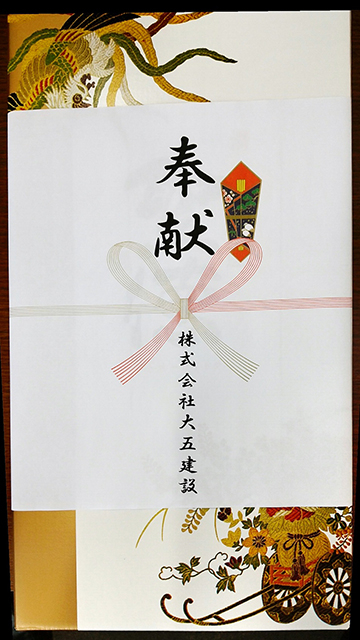 奉献
株式会社大五建設